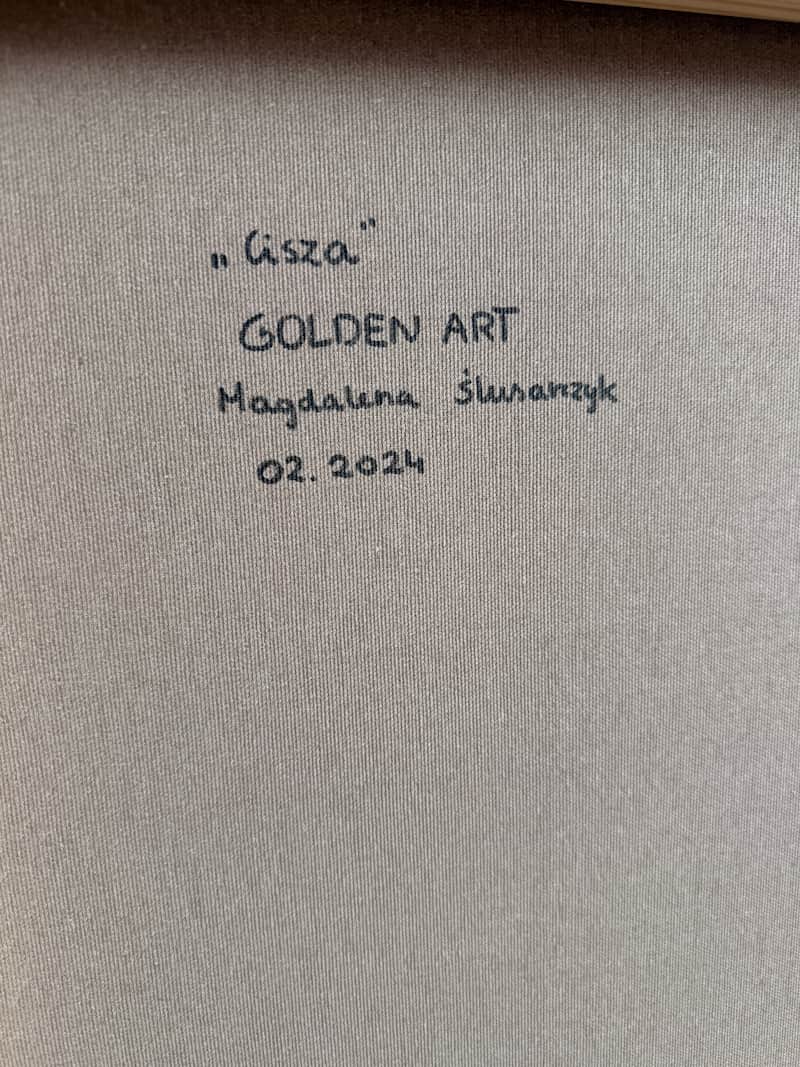 „Cisza"
GOLDEN ART
Magdalena Ślusarczyk
02.2024